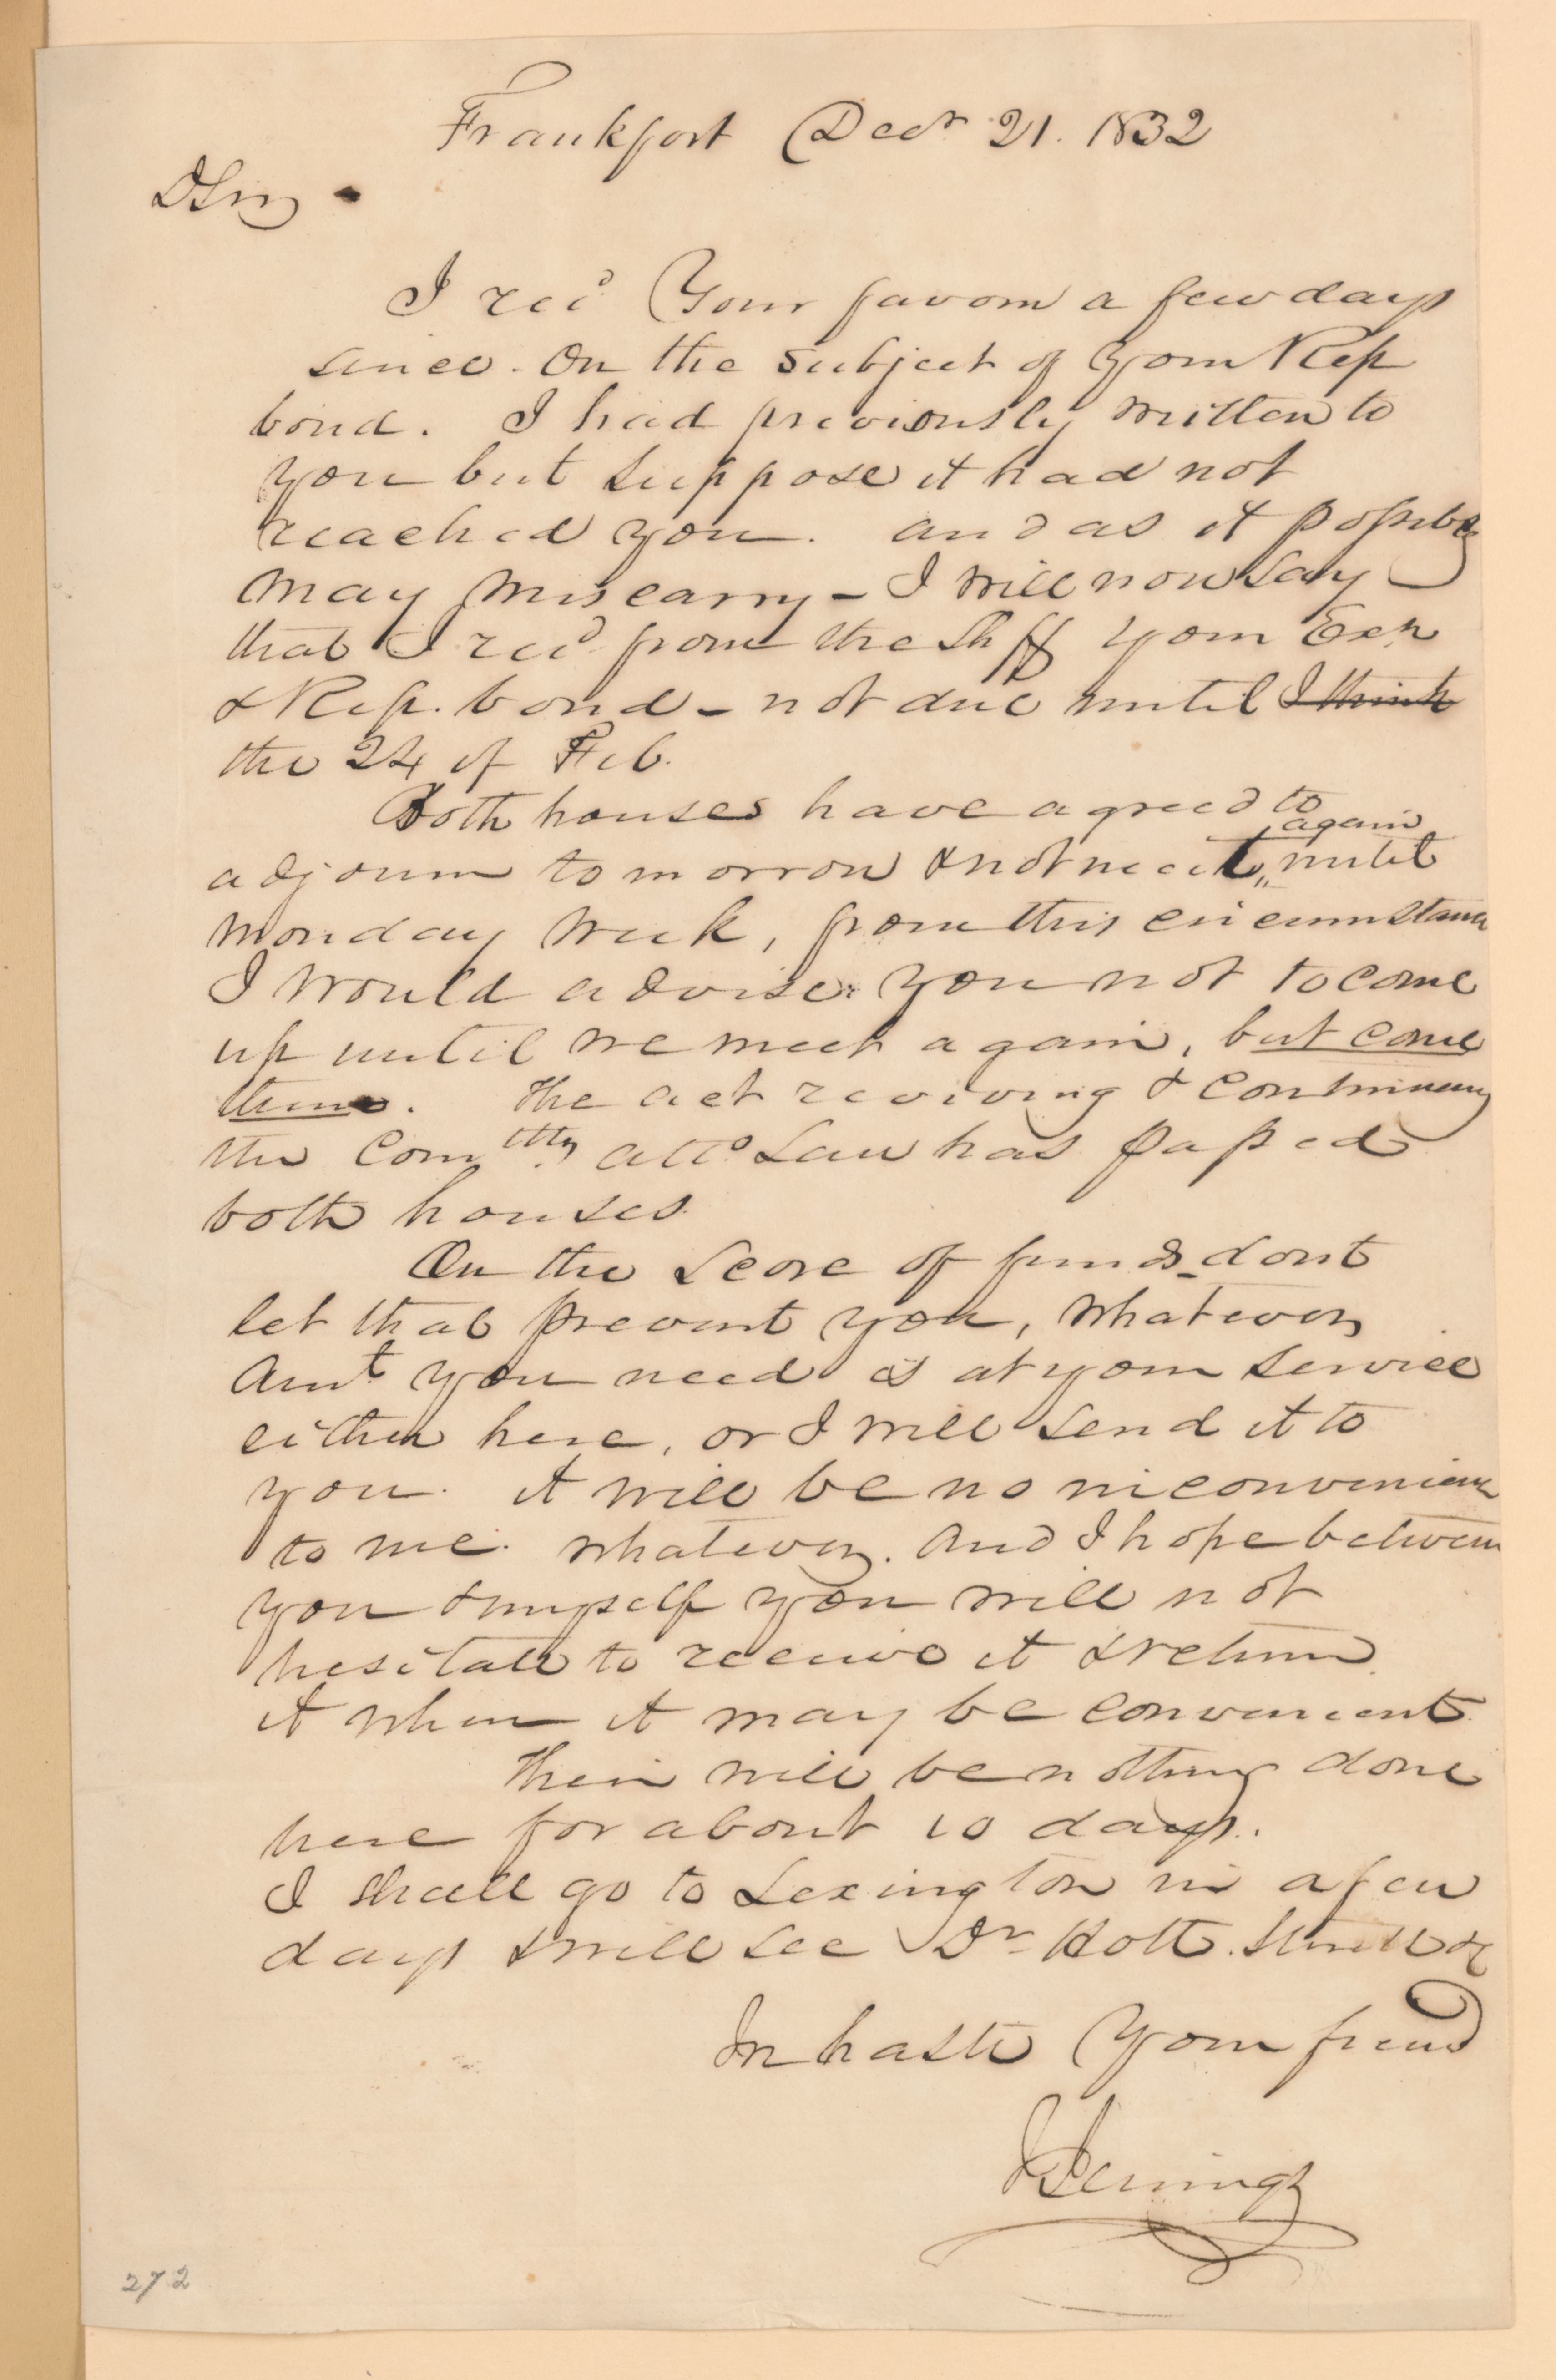 Frankfort Decr 21. 1832
D Sir
I recd Your favour a few days
since. On the subject of your Rep
bond. I had previously written to
you but suppose it had not
reached you. and as it possibly
may miscarry - I will now say
that I recd from the Shff your Exn
& Rep. bond - not due until I think
the 24 of Feb.
Both houses have agreed to
adjourn tomorrow & not meet again until
monday week, from this circumstance
I would advise you not to come
up until we meet again, but come
then. The act reviving & continuing
the Comtths atto Law has passed
both houses.
On the score of funds - dont
let that prevent you, whatever
Amt you need is at your service
either here, or I will send it to
you. it will be no inconvenience
to me. whatever. And I hope between
you & myself you will not
hesitate to receive it & return
it when it may be convenient
Their will be nothing done
here for about 10 days.
I shall go to Lexington in a few
days & will see Dr Holt.
In haste Your friend
272